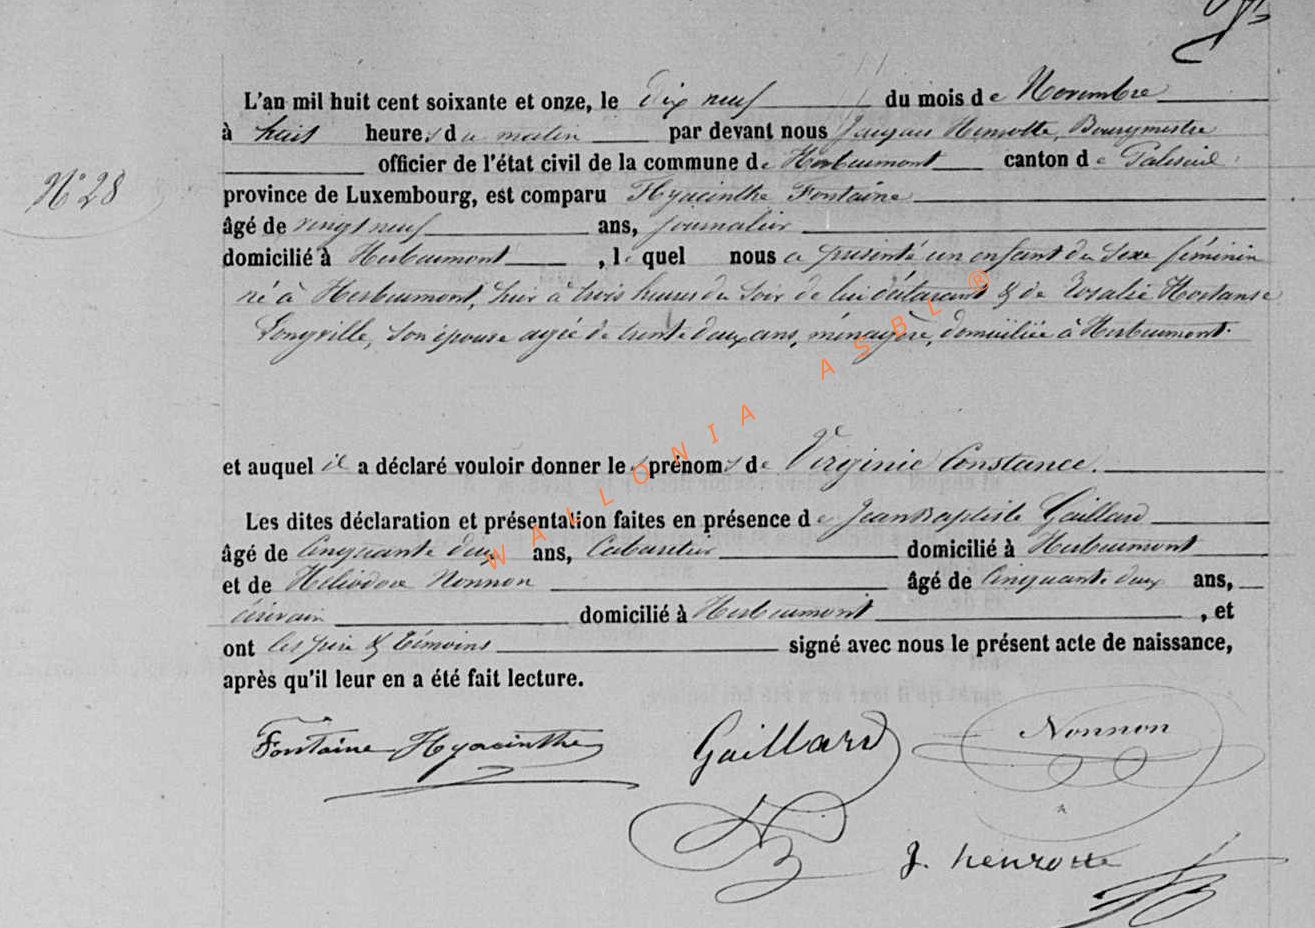 L'an mil huit cent soixante et onze, le dix neuf du mois de Novembre
à huit heures du matin par devant nous Jacques Henrotte, Bourgmestre
officier de l'état civil de la commune de Herbeumont canton de Paliseul
N° 28
province de Luxembourg, est comparu Hyacinthe Fontaine
âgé de vingt neuf ans, journalier
domicilié à Herbeumont, lequel nous a présenté un enfant du sexe féminin
né à Herbeumont, hier à trois heures du soir de lui déclarant & de Rosalie Hortanse
Longville, son épouse agée de trente deux ans, ménagère, domiciliée à Herbeumont.
et auquel il a déclaré vouloir donner les prénoms de Virginie Constance.
Les dites déclaration et présentation faites en présence de Jean Baptiste Gaillard
âgé de Cinquante deux ans, Cabaretier domicilié à Herbeumont
et de Héliodore Nonnon âgé de Cinquante deux ans,
écrivain domicilié à Herbeumont, et
ont les père & témoins signé avec nous le présent acte de naissance,
après qu'il leur en a été fait lecture.
Fontaine Hyacinthe Gaillard Nonnon
J. henrotte
WALLONIA ASBL ®